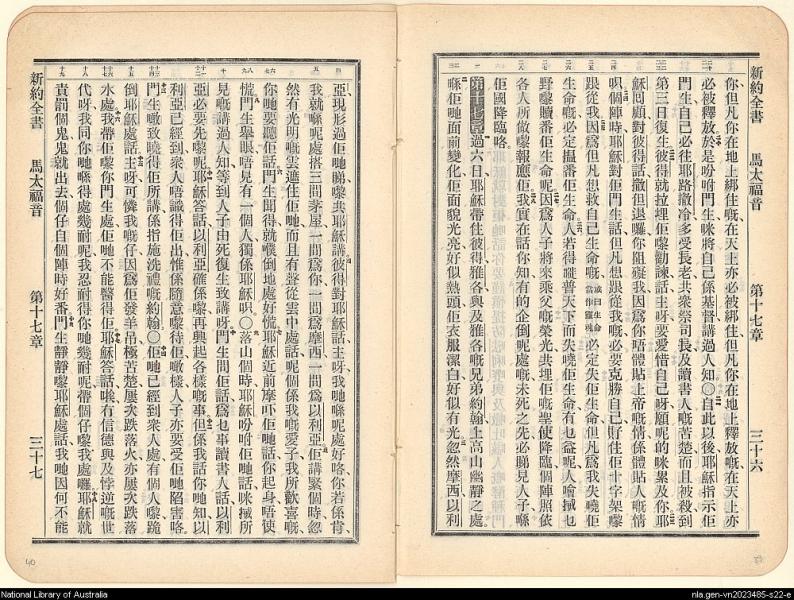 新約全書 馬太福音 第十七章 三十六
你但凡你在地上綁住嘅在天主亦必被綁住但凡你在地上釋放嘅在天主亦
必被釋放於是吩咐門生咪將自己係基督講過人知〇自此以後耶穌指示佢
門生自己必往耶路撒冷多受長老共衆祭司長及讀書人嘅苦楚而且被殺到
第三日復生彼得就拉埋佢嚟勸諫話主呀要愛惜自己呀願呢的咪累及你耶
穌囘顧對彼得話撒但退囉你阻礙我因爲你唔體貼上帝嘅情係體貼人嘅情
呮個陣時耶穌對佢門生話但凡想跟從我嘅必要克勝自己𢬿住佢十字架嚟
跟從我因爲但凡想救自己生命嘅 或曰生命當作靈魂 必定失佢生命但凡爲我失曉佢
生命嘅必定搵番佢生命人若得曬普天下而失曉佢生命有乜益呢人噲𢬿乜
野嚟贖番佢生命呢因爲人子將來乘父嘅榮光共埋佢嘅聖使降臨個陣照依
各人所做嚟報應佢我實在話你知有的企倒呢處嘅未死之先必睇見人子喺
佢國降臨咯。
第十七章過六日耶穌帶住彼得雅各與及雅各嘅兄弟約翰上高山幽靜之處
喺佢哋面前變化佢面貌光亮好似熱頭佢衣服潔白好似有光忽然摩西以利
新約全書 馬太福音 第十七章 三十七
亞現形過佢哋睇嚟共耶穌講彼得對耶穌話主呀我哋喺呢處好咯你若係肯
我就喺呢處搭三間茅屋一間爲你一間爲摩西一間爲以利亞佢講緊個時忽
然有光明嘅雲遮住佢哋而且有聲從雲中處話呢個係我嘅愛子我所歡喜嘅
你哋要聽佢話門生聞得就㒒倒地處好慌耶穌近前摩吓佢哋話你起身唔使
慌門生舉眼唔見有一個人獨係耶穌呮〇落山個時耶穌吩咐佢哋話咪𢬿所
見嘅講過人知等到人子由死復生致講呀門生問佢話爲乜事讀書人話以利
亞必要先嚟呢耶穌答話以利亞確係嚟再興起各樣嘅事但係我話你哋知以
利亞已經到衆人唔識得佢出惟係隨意嚟待佢噉樣人子亦要受佢哋陷害咯
門生噉致曉得佢所講係指施洗禮嘅約翰〇佢哋已經到衆人處有個人嚟跪
倒耶穌處話主呀可憐我嘅仔因爲佢發羊吊極苦楚屢次跌落火亦屢次跌落
水處我帶佢嚟你門生處佢哋不能醫得佢耶穌答話唉冇信德與及悖逆嘅世
代呀我同你哋喺得處幾耐呢我忍耐得你哋幾耐呢帶個仔嚟我處囉耶穌就
責罰個鬼鬼就出去個仔自個陣時好番門生靜靜嚟耶穌處話我哋因何不能
40
National Library of Australia
nla.gen-vn2023485-s22-e